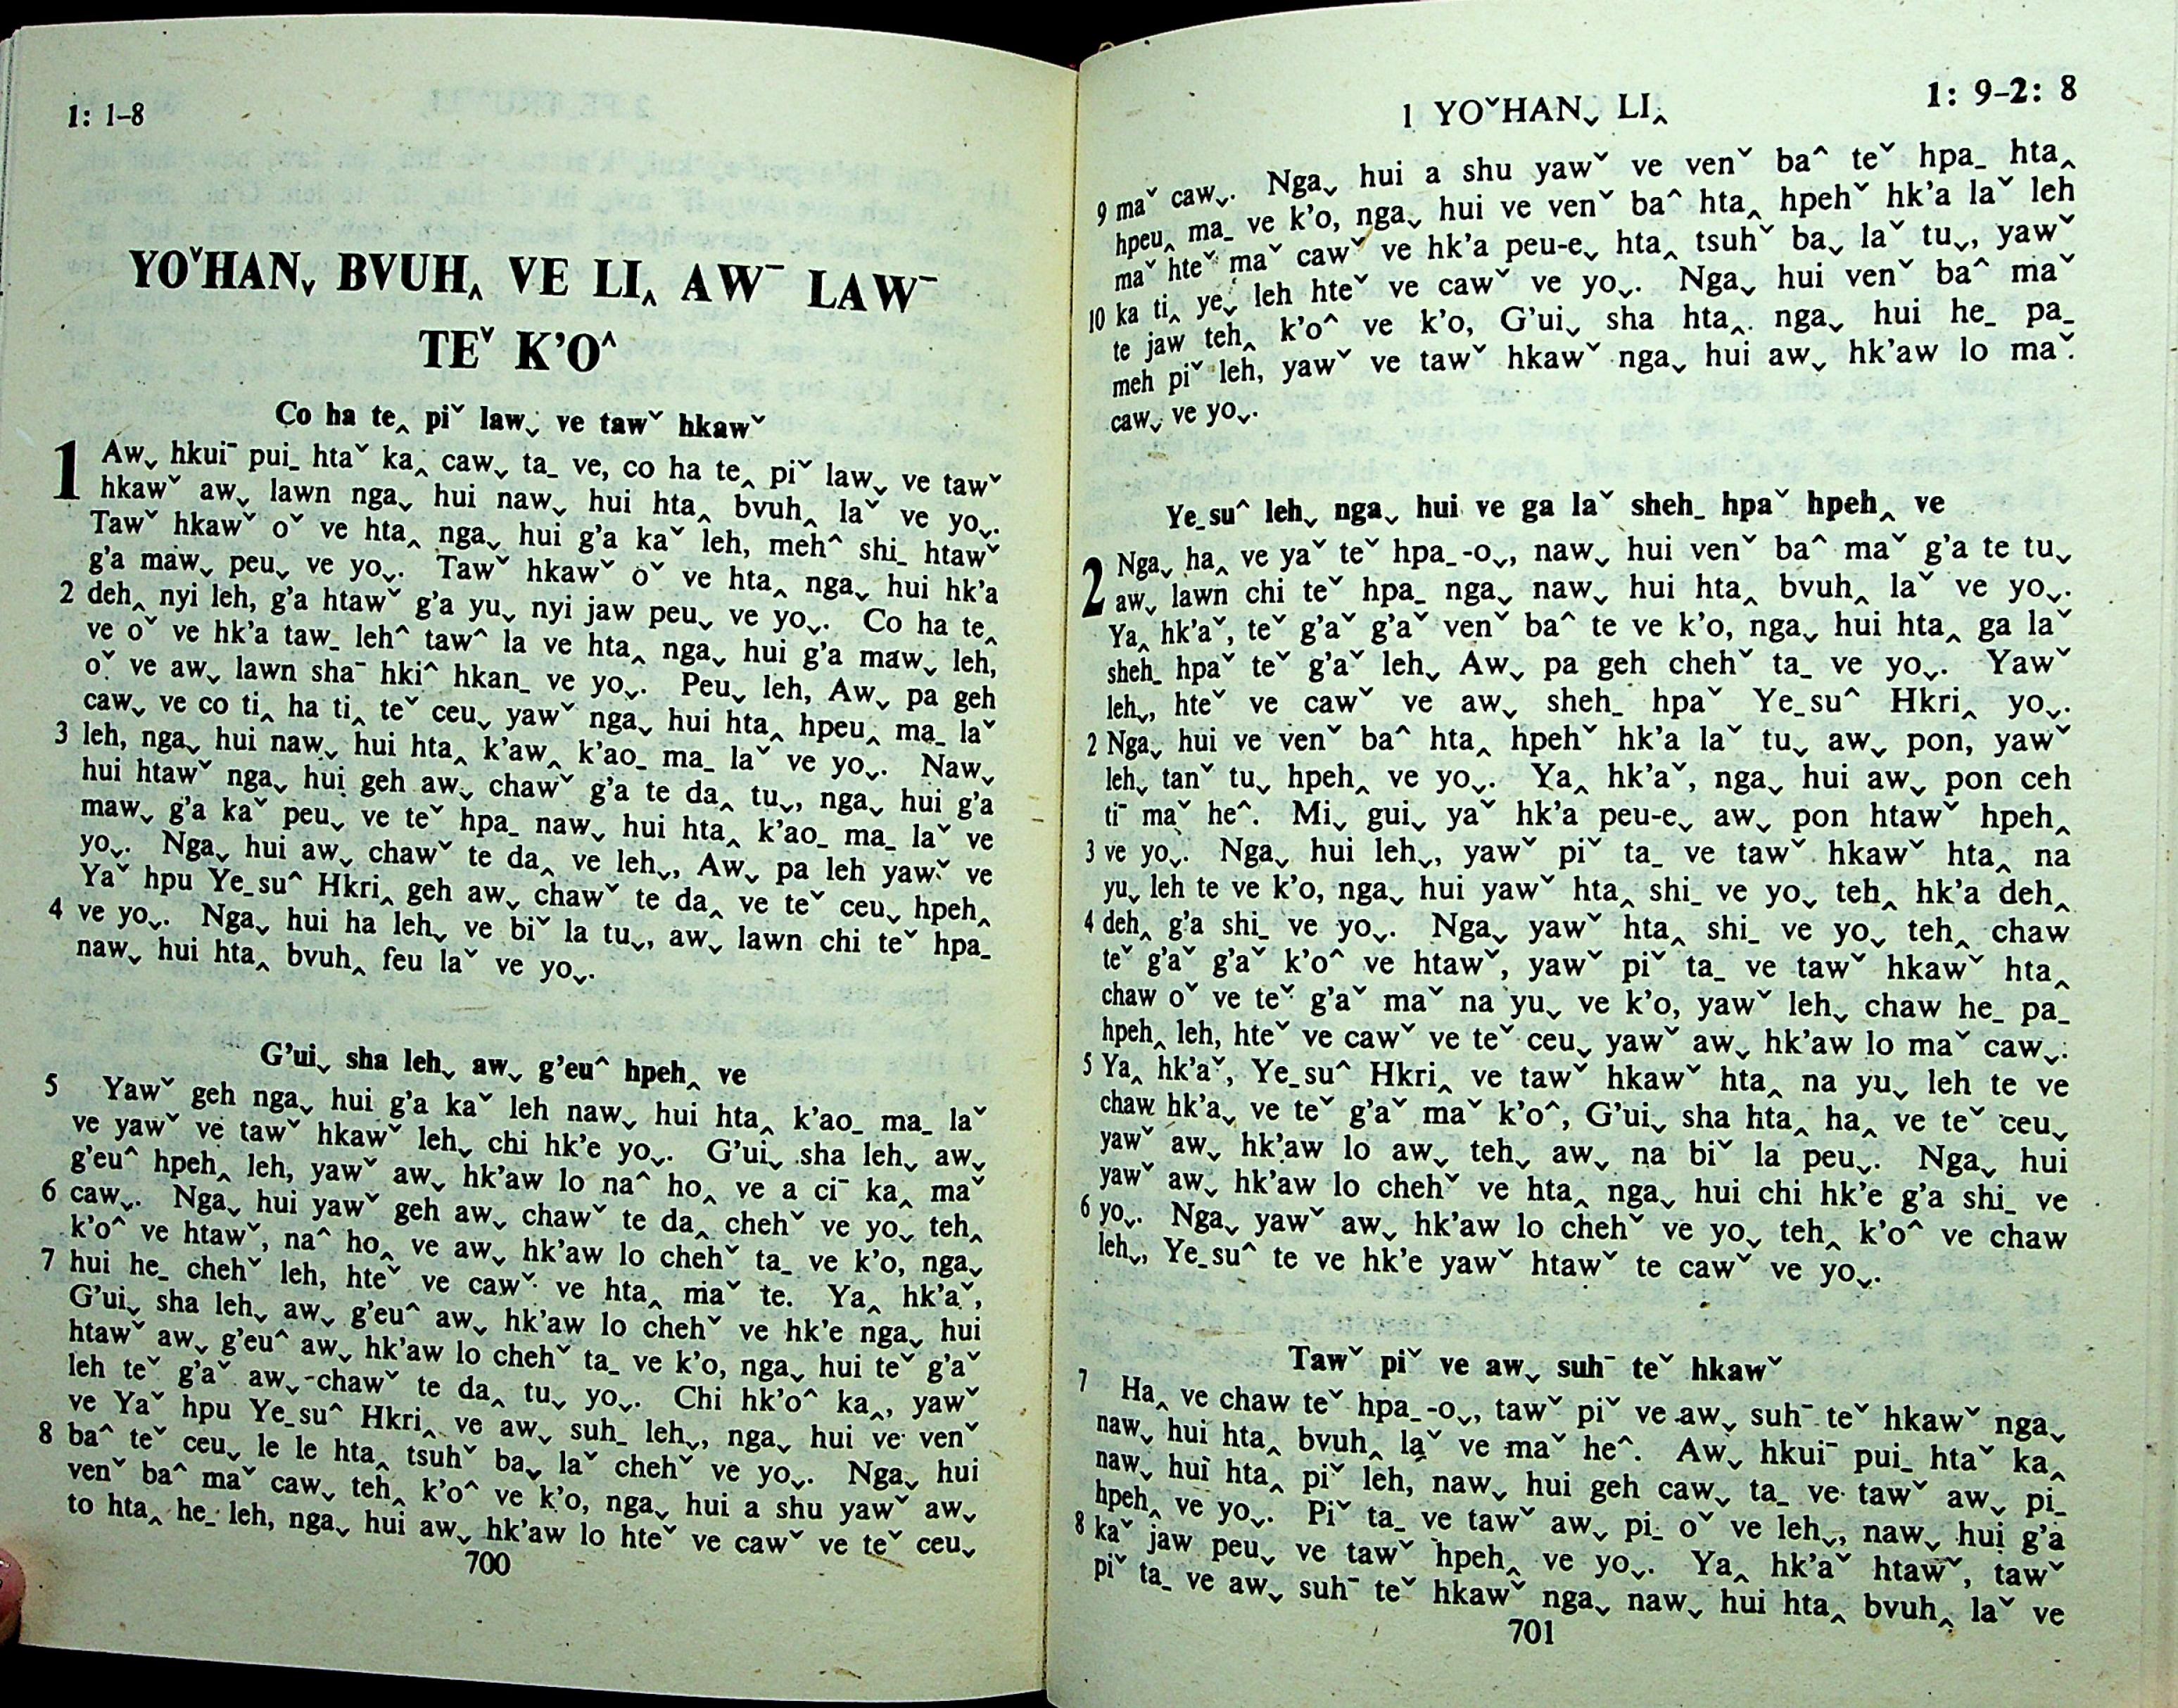 1: 1–8
YOˇHANˬ BVUHꞈ VE LIꞈ AWˉ LAWˉ
TEˇ K’Oˆ
Co ha teꞈ piˇ lawˬ ve tawˇ hkawˇ
1 Awˬ hkuiˉ puiˍ htaˇ kaꞈ cawˬ taˍ ve, co ha teꞈ piˇ lawˬ ve tawˇ
hkawˇ awˬ lawn ngaˬ hui nawˬ hui htaꞈ bvuhꞈ laˇ ve yoˬ.
Tawˇ hkawˇ oˇ ve htaꞈ ngaˬ hui g’a kaˇ leh, mehˆ shiˍ htawˇ
g’a mawˬ peuˬ ve yoˬ. Tawˇ hkawˇ oˇ ve htaꞈ ngaˬ hui hk’a
2 dehꞈ nyi leh, g’a htawˇ g’a yuˬ nyi jaw peuˬ ve yoˬ. Co ha teꞈ
ve oˇ ve hk’a tawˍ lehˆ tawˆ la ve htaꞈ ngaˬ hui g’a mawˬ leh,
oˇ ve awˬ lawn shaˉ hkiˆ hkanˍ ve yoˬ. Peuˬ leh, Awˬ pa geh
cawˬ ve co tiꞈ ha tiꞈ teˇ ceuˬ yawˇ ngaˬ hui htaꞈ hpeuꞈ maˍ laˇ
3 leh, ngaˬ hui nawˬ hui htaꞈ k’awꞈ k’aoˍ maˍ laˇ ve yoˬ. Nawˬ
hui htawˇ ngaˬ hui geh awˬ chawˇ g’a te daꞈ tuˬ, ngaˬ hui g’a
mawˬ g’a kaˇ peuˬ ve teˇ hpaˍ nawˬ hui htaꞈ k’aoˍ maˍ laˇ ve
yoˬ. Ngaˬ hui awˬ chawˇ te daꞈ ve lehˬ, Awˬ pa leh yawˇ ve
Yaˇ hpu Yeˍsuˆ Hkriꞈ geh awˬ chawˇ te daꞈ ve teˇ ceuˬ hpehꞈ
4 ve yoˬ. Ngaˬ hui ha lehˬ ve biˇ la tuˬ, awˬ lawn chi teˇ hpaˍ
nawˬ hui htaꞈ bvuhꞈ feu laˇ ve yoˬ.
G’uiˬ sha lehˬ awˬ g’euˆ hpehꞈ ve
5 Yawˇ geh ngaˬ hui g’a kaˇ leh nawˬ hui htaꞈ k’aoˍ maˍ laˇ
ve yawˇ ve tawˇ hkawˇ lehˬ chi hk’e yoˬ. G’uiˬ sha lehˬ awˬ
g’euˆ hpehꞈ leh, yawˇ awˬ hk’aw lo naˆ hoꞈ ve a ciˉ kaꞈ maˇ
6 cawˬ. Ngaˬ hui yawˇ geh awˬ chawˇ te daꞈ chehˇ ve yoˬ tehꞈ
k’oˆ ve htawˇ, naˆ hoꞈ ve awˬ hk’aw lo chehˇ taˍ ve k’o, ngaˬ
7 hui heˍ chehˇ leh, hteˇ ve cawˇ ve htaꞈ maˇ te. Yaꞈ hk’aˇ,
G’uiˬ sha lehˬ awˬ g’euˆ awˬ hk’aw lo chehˇ ve hk’e ngaˬ hui
htawˇ awˬ g’euˆ awˬ hk’aw lo chehˇ taˍ ve k’o, ngaˬ hui teˇ g’aˇ
leh teˇ g’aˇ awˬ chawˇ te daꞈ tuˬ yoˬ. Chi hk’oˆ kaꞈ, yawˇ
ve Yaˇ hpu Yeˍsuˆ Hkriꞈ ve awˬ suhˍ lehˬ, ngaˬ hui ve venˇ
8 baˆ teˇ ceuˬ le le htaꞈ tsuhˇ baˬ laˇ chehˇ ve yoˬ. Ngaˬ hui
venˇ baˆ maˇ cawˬ tehꞈ k’oˆ ve k’o, ngaˬ hui a shu yawˇ awˬ
to htaꞈ heˍ leh, ngaˬ hui awˬ hk’aw lo hteˇ ve cawˇ ve teˇ ceuˬ
700
1 YOˇHANˬ LIꞈ
1: 9–2: 8
9 maˇ cawˬ. Ngaˬ hui a shu yawˇ ve venˇ baˆ teˇ hpaˍ htaꞈ
hpeuꞈ maˍ ve k’o, ngaˬ hui ve venˇ baˆ htaꞈ hpehˇ hk’a laˇ leh
maˇ hteˇ maˇ cawˇ ve hk’a peu-eˬ htaꞈ tsuhˇ baˬ laˇ tuˬ, yawˇ
10 ka tiꞈ yeˬ leh hteˇ ve cawˇ ve yoˬ. Ngaˬ hui venˇ baˆ maˇ
te jaw tehꞈ k’oˆ ve k’o, G’uiˬ sha htaꞈ ngaˬ hui heˍ paˍ
meh piˇ leh, yawˇ ve tawˇ hkawˇ ngaˬ hui awˬ hk’aw lo maˇ
cawˬ ve yoˬ.
Yeˍsuˆ lehˬ ngaˬ hui ve ga laˇ shehˍ hpaˇ hpehꞈ ve
2 Ngaˬ haꞈ ve yaˇ teˇ hpaˍ-oˬ, nawˬ hui venˇ baˆ maˇ g’a te tuˬ
awˬ lawn chi teˇ hpaˍ ngaˬ nawˬ hui htaꞈ bvuhꞈ laˇ ve yoˬ.
Yaꞈ hk’aˇ, teˇ g’aˇ g’aˇ venˇ baˆ te ve k’o, ngaˬ hui htaꞈ ga laˇ
shehˍ hpaˇ teˇ g’aˇ lehˬ Awˬ pa geh chehˇ taˍ ve yoˬ. Yawˇ
lehˬ, hteˇ ve cawˇ ve awˬ shehˍ hpaˇ Yeˍsuˆ Hkriꞈ yoˬ.
2 Ngaˬ hui ve venˇ baˆ htaꞈ hpehˇ hk’a laˇ tuˬ awˬ pon, yawˇ
lehˬ tanˇ tuˬ hpehꞈ ve yoˬ. Yaꞈ hk’aˇ, ngaˬ hui awˬ pon ceh
tiˉ maˇ heˆ. Miˬ guiˬ yaˇ hk’a peu-eˬ awˬ pon htawˇ hpehꞈ
3 ve yoˬ. Ngaˬ hui lehˬ, yawˇ piˇ taˍ ve tawˇ hkawˇ htaꞈ na
yuˬ leh te ve k’o, ngaˬ hui yawˇ htaꞈ shiˍ ve yoˬ tehꞈ hk’a dehꞈ
4 dehꞈ g’a shiˍ ve yoˬ. Ngaˬ yawˇ htaꞈ shiˍ ve yoˬ tehꞈ chaw
teˇ g’aˇ g’aˇ k’oˆ ve htawˇ, yawˇ piˇ taˍ ve tawˇ hkawˇ htaꞈ
chaw oˇ ve teˇ g’aˇ maˇ na yuˬ ve k’o, yawˇ lehˬ chaw heˍ paˍ
hpehꞈ leh, hteˇ ve cawˇ ve teˇ ceuˬ yawˇ awˬ hk’aw lo maˇ cawˬ.
5 Yaꞈ hk’aˇ, Yeˍsuˆ Hkriꞈ ve tawˇ hkawˇ htaꞈ na yuˬ leh te ve
chaw hk’aˬ ve teˇ g’aˇ maˇ k’oˆ, G’uiˬ sha htaꞈ haꞈ ve teˇ ceuˬ
yawˇ awˬ hk’aw lo awˬ tehˬ awˬ na biˇ la peuˬ. Ngaˬ hui
yawˇ awˬ hk’aw lo chehˇ ve htaꞈ ngaˬ hui chi hk’e g’a shiˍ ve
6 yoˬ. Ngaˬ yawˇ awˬ hk’aw lo chehˇ ve yoˬ tehꞈ k’oˆ ve chaw
lehˬ, Yeˍsuˆ te ve hk’e yawˇ htawˇ te cawˇ ve yoˬ.
Tawˇ piˇ ve awˬ suhˉ teˇ hkawˇ
7 Haꞈ ve chaw teˇ hpaˍ-oˬ, tawˇ piˇ ve awˬ suhˉ teˇ hkawˇ ngaˬ
nawˬ hui htaꞈ bvuhꞈ laˇ ve maˇ heˆ. Awˬ hkuiˉ puiˍ htaˇ kaꞈ
nawˬ hui htaꞈ piˇ leh, nawˬ hui geh cawˬ taˍ ve tawˇ awˬ piˍ
hpehꞈ ve yoˬ. Piˇ taˍ ve tawˇ awˬ piˍ oˇ ve lehˬ, nawˬ hui g’a
8 kaˇ jaw peuˬ ve tawˇ hpehꞈ ve yoˬ. Yaꞈ hk’aˇ htawˇ, tawˇ
piˇ taˍ ve awˬ suhˉ teˇ hkawˇ ngaˬ nawˬ hui htaꞈ bvuhꞈ laˇ ve
701